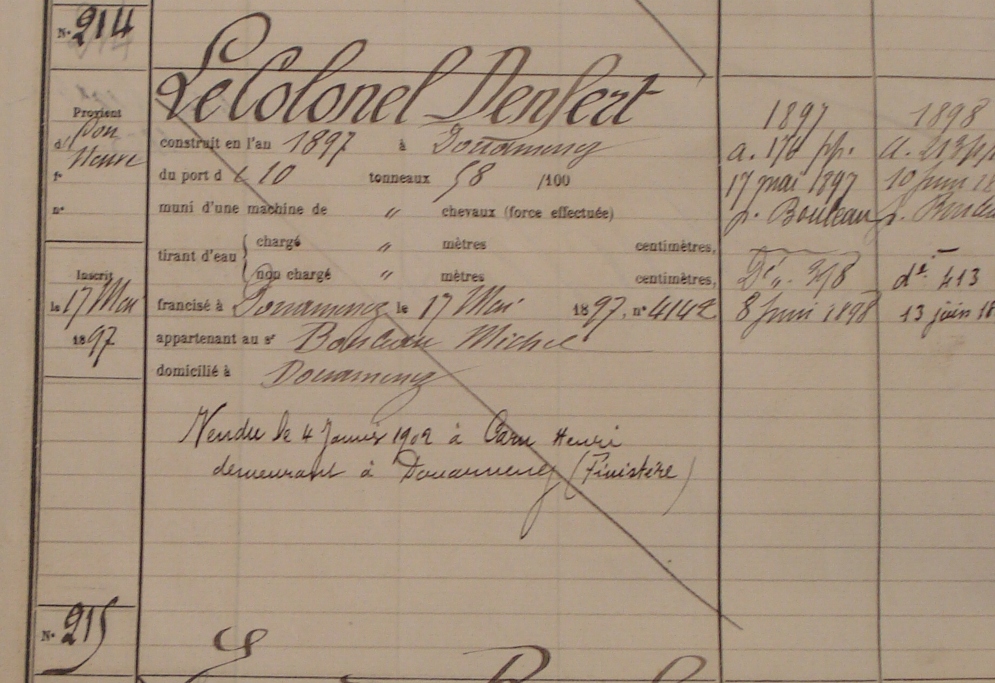 N° 214
Le Colonel Denfert
Provient
d
f°
n°
Inscrit
le 17 Mai
1897
construit en l'an 1897 à Douarnenez
du port de 10 tonneaux 58 /100
muni d'une machine de " chevaux (force effectuée)
tirant d'eau { chargé " mètres centimètres,
non chargé " mètres centimètres,
francisé à Douarnenez le 17 Mai 1897, n° 4142
appartenant au sr Michel
domicilié à Douarnenez
Vendu le 4 Janvier 1902 à Henri
demeurant à Douarnenez (Finistère)
1897
a. 176 pp.
17 mai 1897
p.
8 juin 1898
1898
a. 213
10 juin 18
p.
d° 413
13 juin 18
N° 215